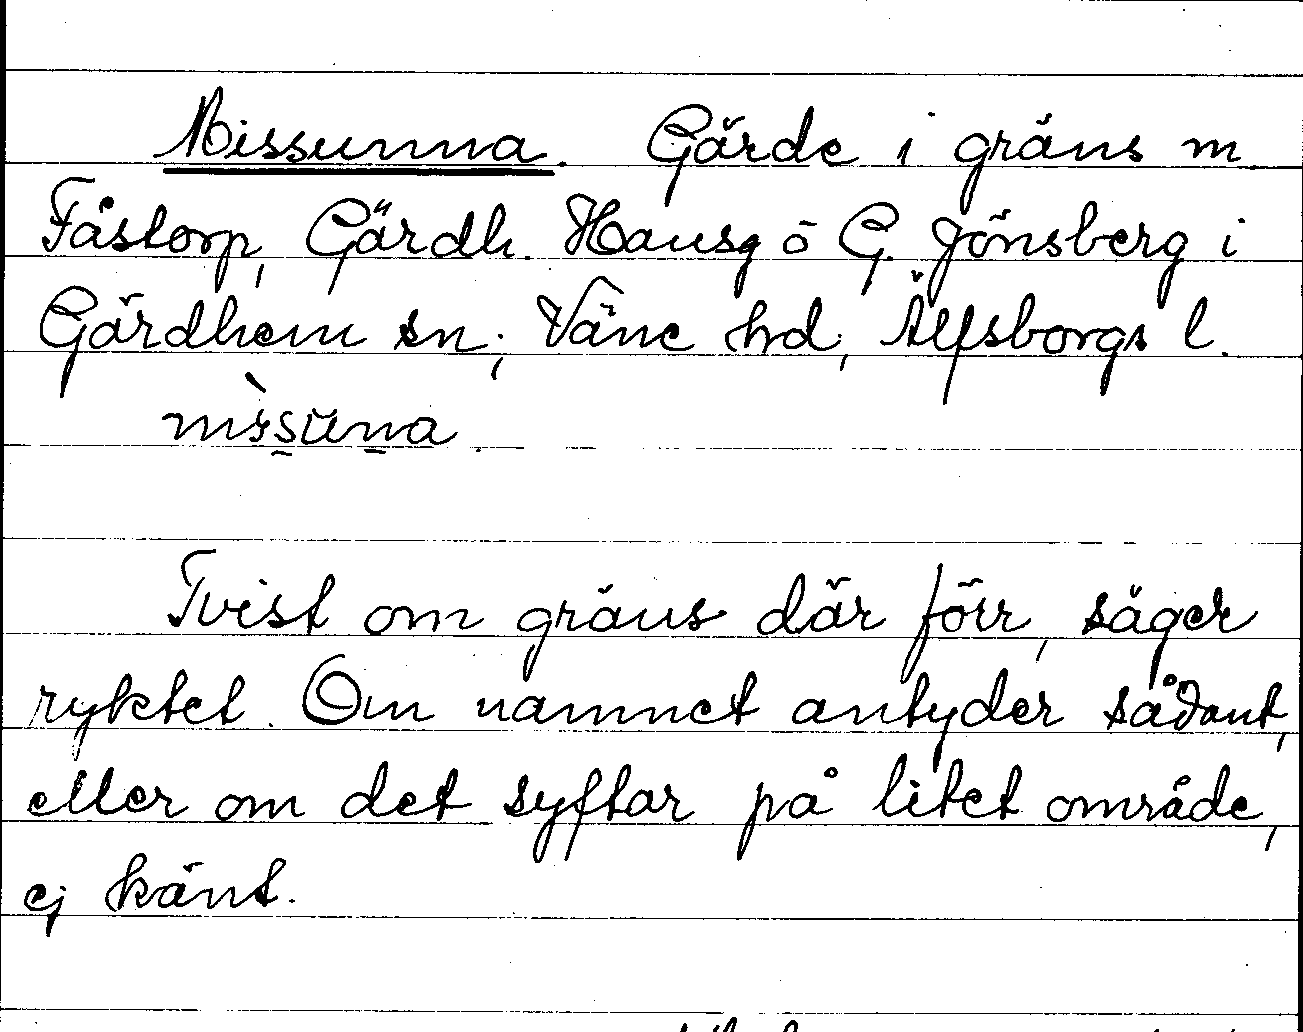 Missunna. Gärde i gräns m
Fåstorp, Gärdh. Hansg ō G. Jönsberg i
Gärdhem sn; Väne hd, Älfsborgs l.
mìs̱ŭṉa.
Tvist om gräns där förr, säger
ryktet. Om namnet antyder sådant,
eller om det syftar på litet område,
ej känt.